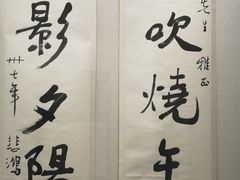 先生雅正
吹燒午
影夕陽
卅七年
悲鴻